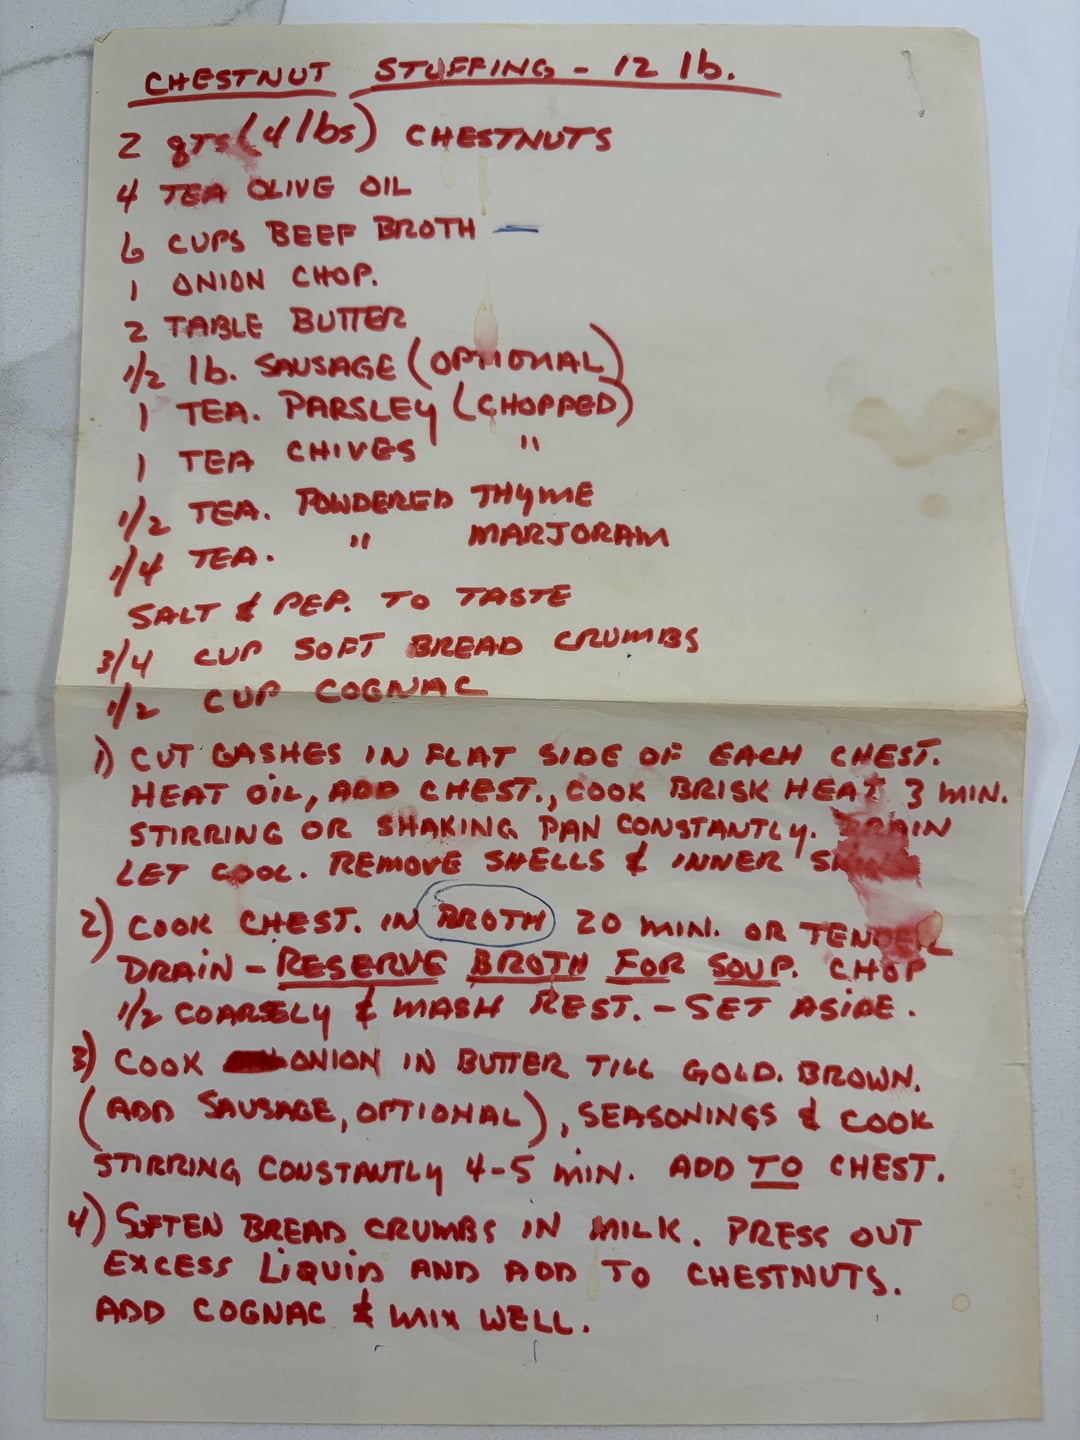 CHESTNUT STUFFING - 12 lb.
2 qts (4 lbs) CHESTNUTS
4 TEA OLIVE OIL
6 CUPS BEEF BROTH —
1 ONION CHOP.
2 TABLE BUTTER
1/2 lb. SAUSAGE (OPTIONAL)
1 TEA. PARSLEY (CHOPPED)
1 TEA CHIVES "
1/2 TEA. POWDERED THYME
1/4 TEA. " MARJORAM
SALT & PEP. TO TASTE
3/4 CUP SOFT BREAD CRUMBS
1/2 CUP COGNAC
1) CUT GASHES IN FLAT SIDE OF EACH CHEST.
HEAT OIL, ADD CHEST., COOK BRISK HEAT 3 MIN.
STIRRING OR SHAKING PAN CONSTANTLY. DRAIN
LET COOL. REMOVE SHELLS & INNER
2) COOK CHEST. IN BROTH 20 MIN. OR TENDER
DRAIN - RESERVE BROTH FOR SOUP. CHOP
1/2 COARSELY & MASH REST. - SET ASIDE.
3) COOK ONION IN BUTTER TILL GOLD. BROWN.
(ADD SAUSAGE, OPTIONAL), SEASONINGS & COOK
STIRRING CONSTANTLY 4-5 MIN. ADD TO CHEST.
4) SOFTEN BREAD CRUMBS IN MILK. PRESS OUT
EXCESS LIQUID AND ADD TO CHESTNUTS.
ADD COGNAC & MIX WELL.